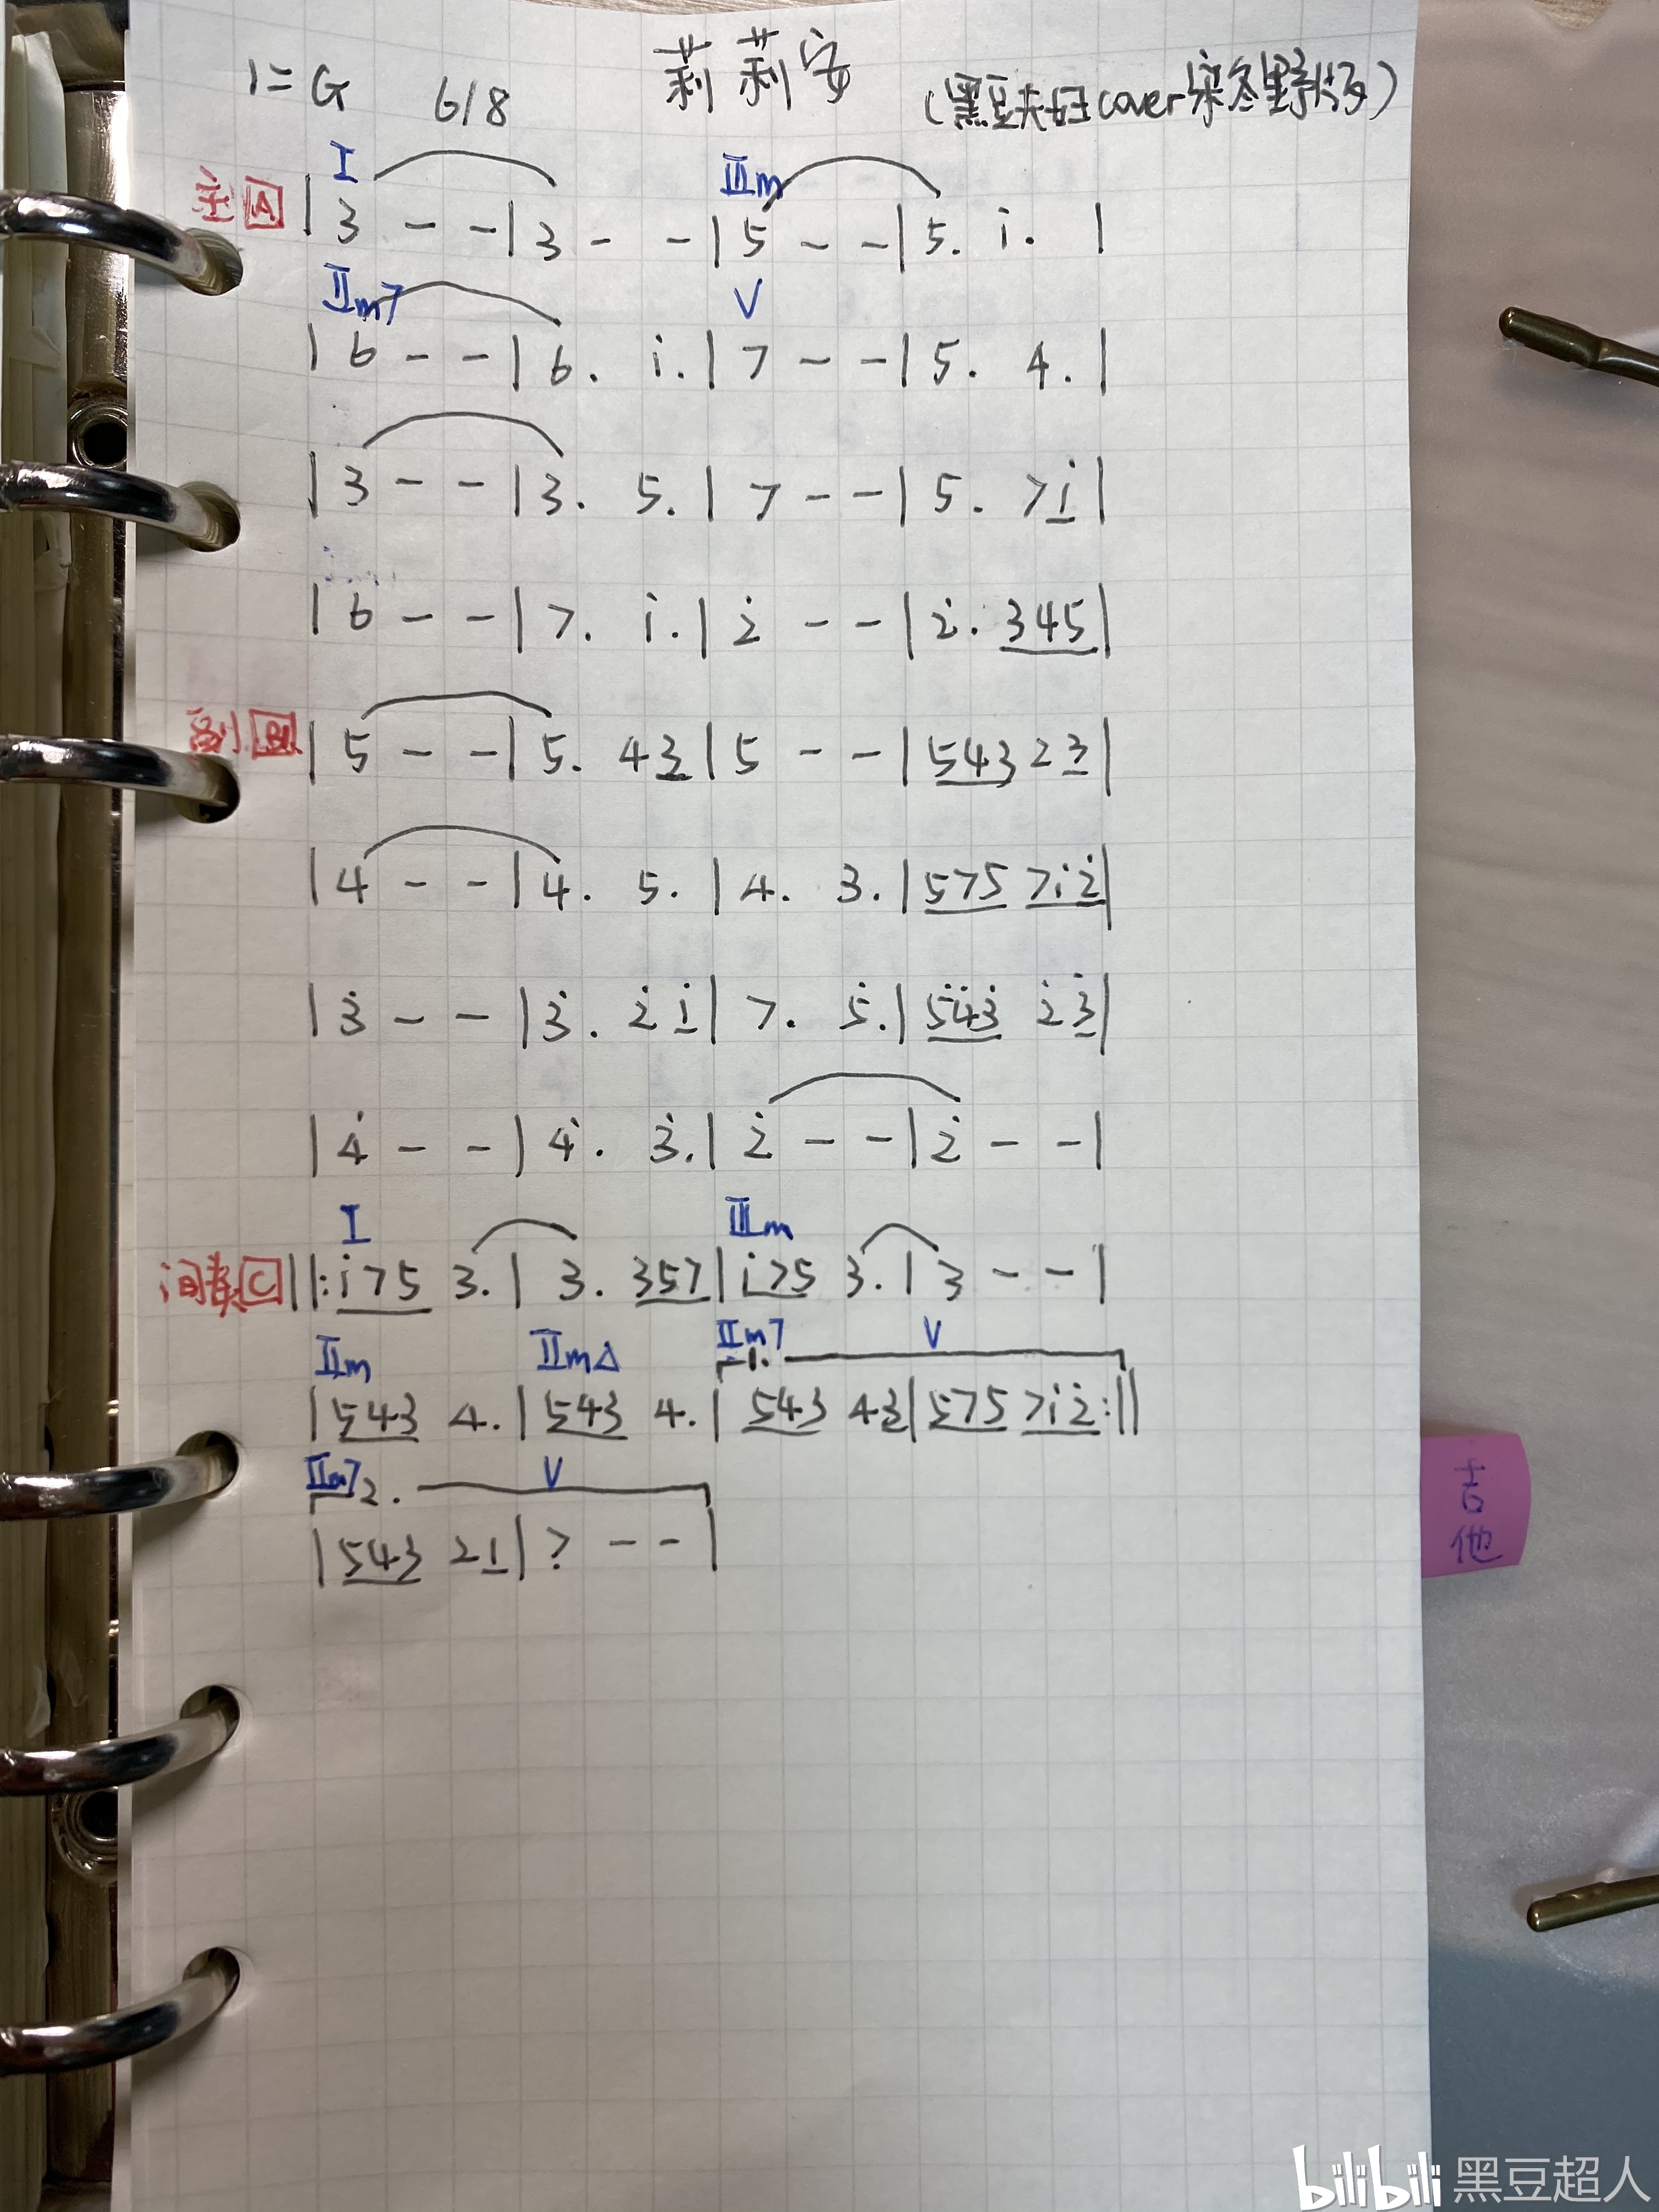 1=G 6/8 莉莉安 (黑豆夫妇cover宋冬野版)
I IIIm
主 A | 3 - - | 3 - - | 5 - - | 5. i. |
IIm7 V
| 6 - - | 6. i. | 7 - - | 5. 4. |
| 3 - - | 3. 5. | 7 - - | 5. 7i |
| 6 - - | 7. i. | 2̇ - - | 2̇. 345 |
副 B | 5 - - | 5. 43 | 5 - - | 543 23 |
| 4 - - | 4. 5. | 4. 3. | 575 7i2̇ |
| 3̇ - - | 3̇. 2̇i | 7. 5̇. | 5̇4̇3̇ 2̇3̇ |
| 4̇ - - | 4̇. 3̇. | 2̇ - - | 2̇ - - |
I IIIm
间奏 C ||: i75 3. | 3. 357 | i75 3. | 3 - - |
IIm IImΔ IIm7 1. V
| 543 4. | 543 4. | 543 43 | 575 7i2̇ :||
IIm7 2. V
| 543 21 | 7 - - |
吉他
bilibili 黑豆超人